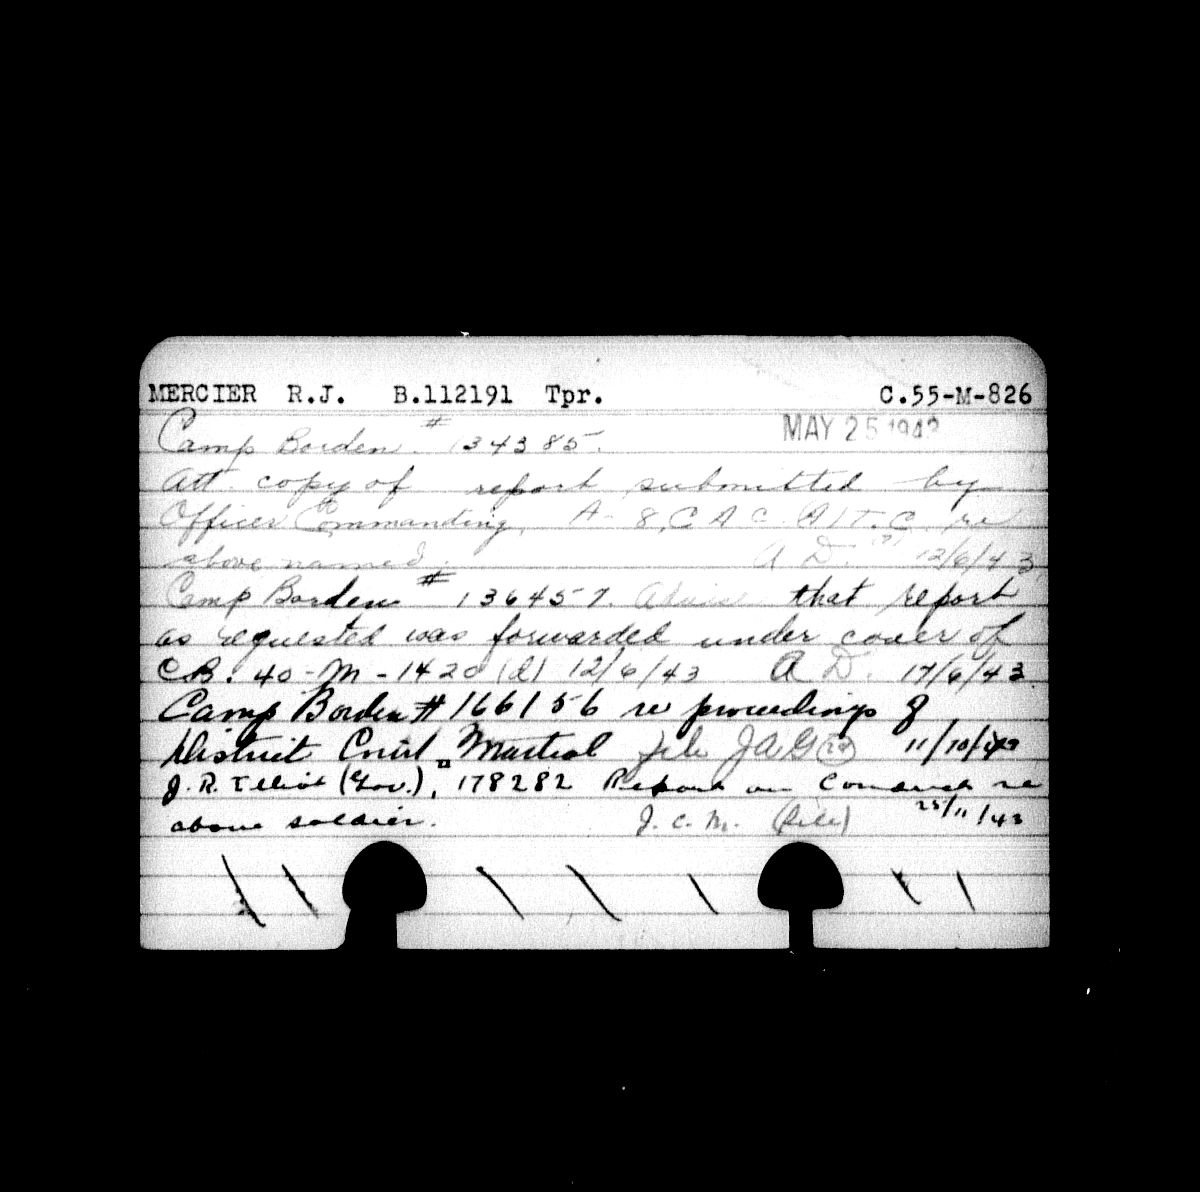 MERCIER R.J. B.112191 Tpr. C.55-M-826
Camp Borden # 134385. MAY 25 1943
Att. copy of report submitted by
Officer Commanding, A-8, C A C A/T.C. re
above named. A D. 12/6/43
Camp Borden # 136457. Advise that report
as requested was forwarded under cover of
C.B. 40-M-1420 (d) 12/6/43 A D. 17/6/43
Camp Borden # 166156 re proceedings of
District Court Martial file JAG 11/10/43
J.R. Elliot (Gov.), 178282 Report on Conduct re
above soldier. J.C.M. (file) 25/11/43